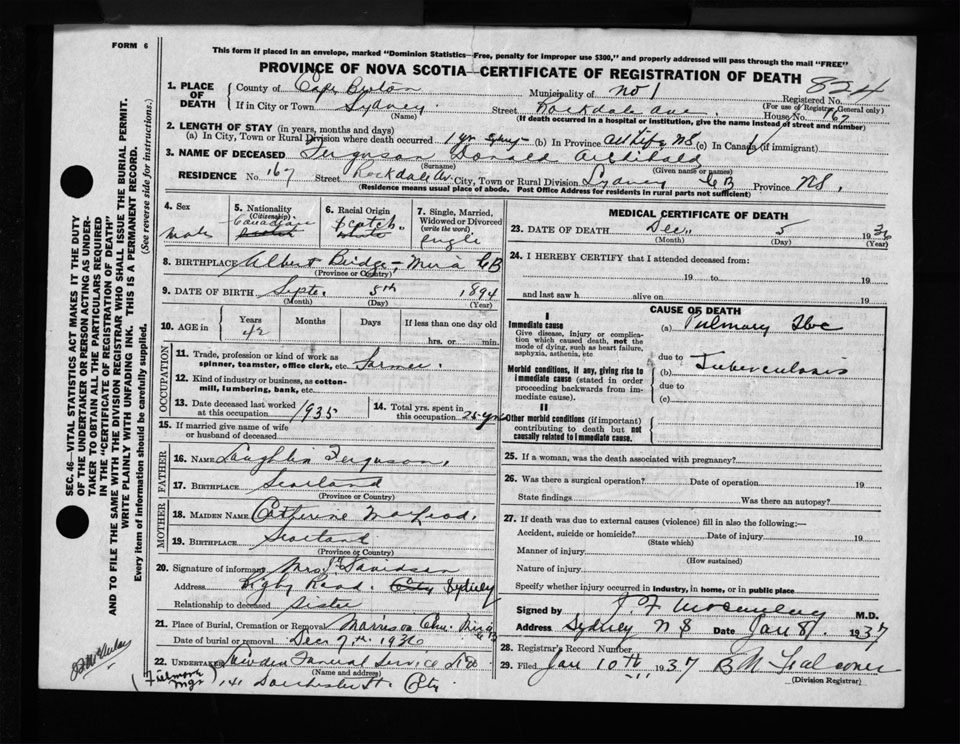 FORM 6
This form if placed in an envelope, marked "Dominion Statistics—Free, penalty for improper use $300," and properly addressed will pass through the mail "FREE"
PROVINCE OF NOVA SCOTIA—CERTIFICATE OF REGISTRATION OF DEATH
824
1. PLACE OF DEATH
County of Cape Breton Municipality of No 1 Registered No.
(For use of Registrar General only)
If in City or Town Sydney Street Rockdale Ave. House No. 167
(Name) (If death occurred in a hospital or institution, give the name instead of street and number)
2. LENGTH OF STAY (in years, months and days)
(a) In City, Town or Rural Division where death occurred 1 yr Sydney (b) In Province All Life NS (c) In Canada (if immigrant)
3. NAME OF DECEASED Ferguson Donald Archibald
(Surname) (Given name or names)
RESIDENCE No. 167 Street Rockdale Av. City, Town or Rural Division Sydney CB Province NS.
(Residence means usual place of abode. Post Office Address for residents in rural parts not sufficient)
4. Sex Male
5. Nationality (Citizenship) Canadian
6. Racial Origin Scotch. White
7. Single, Married, Widowed or Divorced (write the word) Single
8. BIRTHPLACE Albert Bridge, Mira CB
(Province or Country)
9. DATE OF BIRTH Sept. 5th 1894
(Month) (Day) (Year)
10. AGE in Years 42 Months Days If less than one day old
hrs. or min.
OCCUPATION
11. Trade, profession or kind of work as spinner, teamster, office clerk, etc. Farmer.
12. Kind of industry or business, as cotton-mill, lumbering, bank, etc.
13. Date deceased last worked at this occupation 1935
14. Total yrs. spent in this occupation 25 yrs
15. If married give name of wife or husband of deceased
FATHER
16. NAME Laughlin Ferguson.
17. BIRTHPLACE Scotland
(Province or Country)
MOTHER
18. MAIDEN NAME Catherine MacLeod.
19. BIRTHPLACE Scotland
(Province or Country)
20. Signature of informant Mrs. Davidson
Address Rigby Road. City Sydney
Relationship to deceased Sister
21. Place of Burial, Cremation or Removal Morrison Cem. Mira CB
Date of burial or removal Dec 7th 1936
22. UNDERTAKER Funeral Service Ltd
(Name and address)
141 Dorchester St City
Mgr
MEDICAL CERTIFICATE OF DEATH
23. DATE OF DEATH Dec. 5 1936
(Month) (Day) (Year)
24. I HEREBY CERTIFY that I attended deceased from:
19 to 19
and last saw h alive on 19
CAUSE OF DEATH
I
Immediate cause
Give disease, injury or complication which caused death, not the mode of dying, such as heart failure, asphyxia, asthenia, etc
(a) Pulmonary Tbc
due to
Morbid conditions, if any, giving rise to immediate cause (stated in order proceeding backwards from immediate cause).
(b) Tuberculosis
due to
(c)
II
Other morbid conditions (if important) contributing to death but not causally related to immediate cause.
25. If a woman, was the death associated with pregnancy?
26. Was there a surgical operation? Date of operation 19
State findings Was there an autopsy?
27. If death was due to external causes (violence) fill in also the following:—
Accident, suicide or homicide? Date of injury 19
(State which)
Manner of injury
(How sustained)
Nature of injury
Specify whether injury occurred in industry, in home, or in public place
Signed by M.D.
Address Sydney N S Date Jan 8/. 1937
28. Registrar's Record Number
29. Filed Jan 10th 1937 B M Falconer
(Division Registrar)
SEC. 46—VITAL STATISTICS ACT MAKES IT THE DUTY
OF THE UNDERTAKER OR PERSON ACTING AS UNDER-
TAKER TO OBTAIN ALL THE PARTICULARS REQUIRED
IN THE "CERTIFICATE OF REGISTRATION OF DEATH"
AND TO FILE THE SAME WITH THE DIVISION REGISTRAR WHO SHALL ISSUE THE BURIAL PERMIT.
WRITE PLAINLY WITH UNFADING INK. THIS IS A PERMANENT RECORD.
Every item of information should be carefully supplied.
(See reverse side for instructions.)